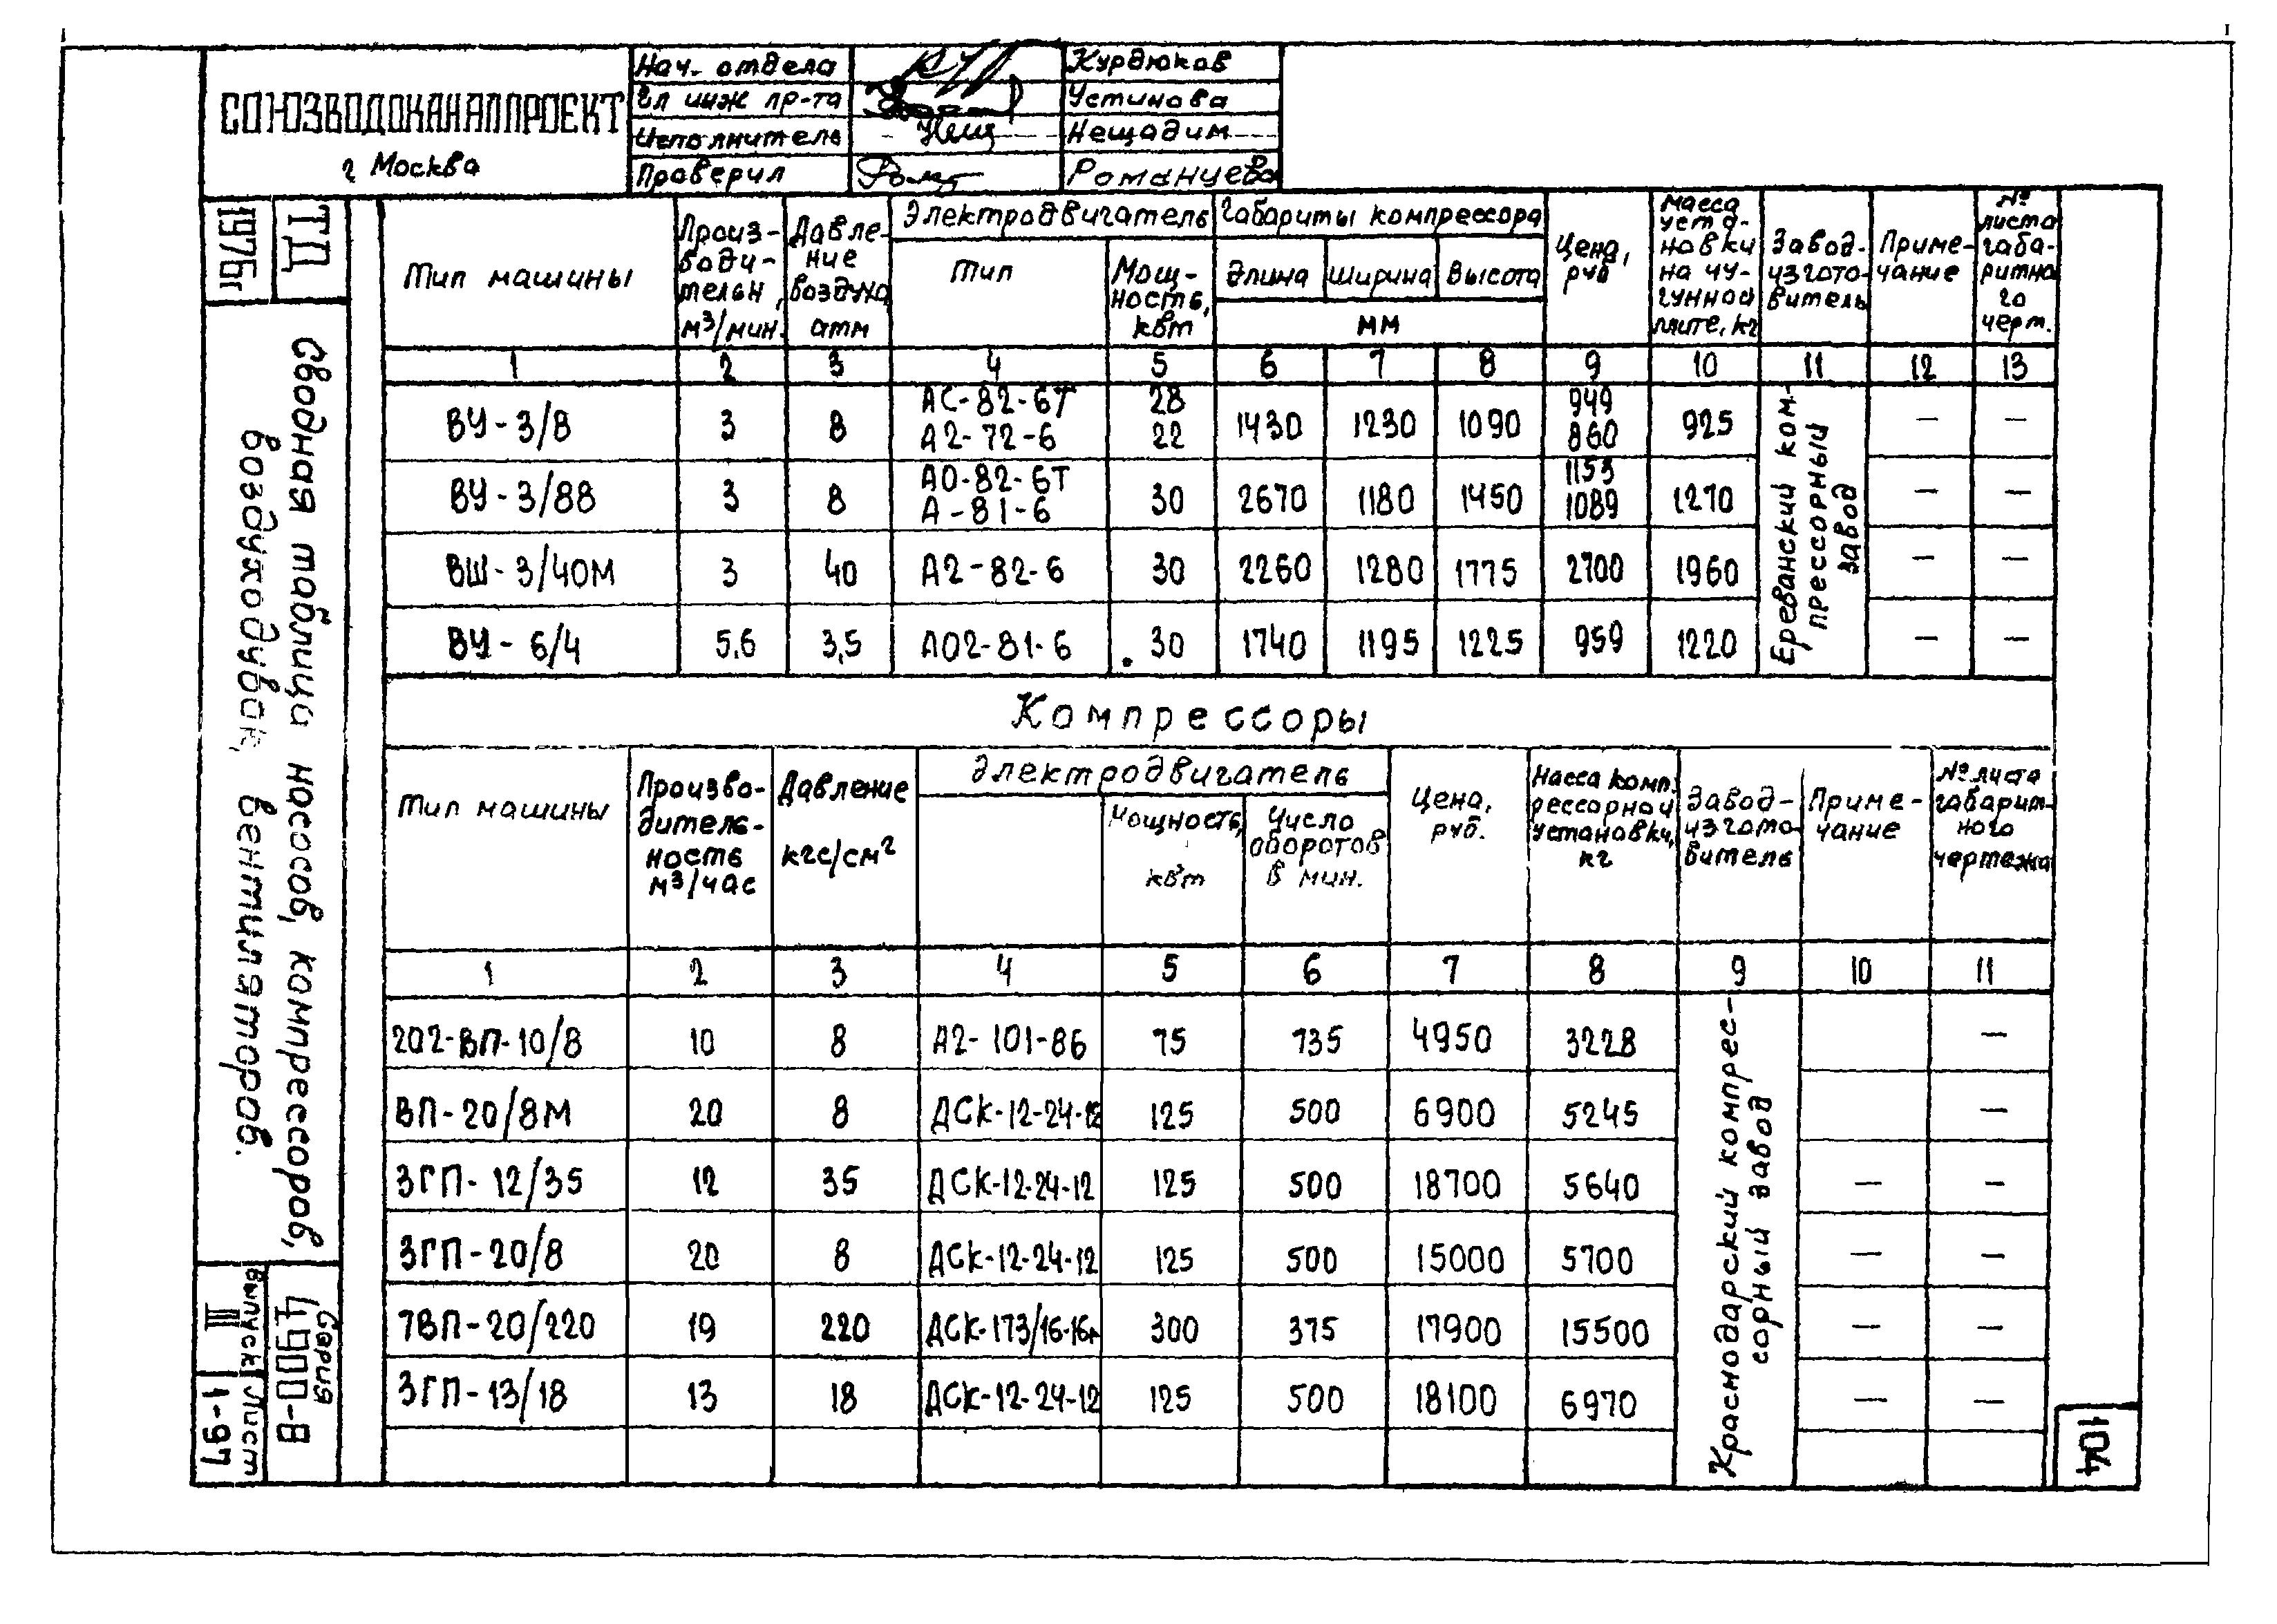 СОЮЗВОДОКАНАЛПРОЕКТ
г Москва
Нач. отдела Курдюков
Гл инж пр-та Устинова
Исполнитель Нещадим
Проверил Романцева
ТД
1976г
Сводная таблица насосов, компрессоров,
воздуходувок, вентиляторов.
Серия
4.900-8
Выпуск
III
Лист
1-97
104
Тип машины
Произ-
води-
тельн,
м³/мин.
Давле-
ние
воздуха,
атм
Электродвигатель
Тип
Мощ-
ность,
квт
Габариты компрессора
Длина Ширина Высота
мм
Цена,
руб
Масса
уста-
новки
на чу-
гунной
плите, кг
Завод-
изгото-
витель
Приме-
чание
№
листа
габа-
ритно
го
черт.
1 2 3 4 5 6 7 8 9 10 11 12 13
ВУ-3/8 3 8 АС-82-6Т 28 1430 1230 1090 949 925 — —
А2-72-6 22 860
ВУ-3/88 3 8 АО-82-6Т 30 2670 1180 1450 1153 1270 — —
А-81-6 1089
ВШ-3/40М 3 40 А2-82-6 30 2260 1280 1775 2700 1960 — —
ВУ-6/4 5,6 3,5 АО2-81-6 30 1740 1195 1225 959 1220 — —
Ереванский ком-
прессорный
завод
Компрессоры
Тип машины
Произво-
дитель-
ность
м³/час
Давление
кгс/см²
Электродвигатель
Мощность,
квт
Число
оборотов
в мин.
Цена,
руб.
Масса комп.
рессорной
установки,
кг
Завод-
изгото-
витель
Приме-
чание
№ листа
габарит-
ного
чертежа
1 2 3 4 5 6 7 8 9 10 11
202-ВП-10/8 10 8 А2-101-86 75 735 4950 3228 —
ВП-20/8М 20 8 ДСК-12-24-12 125 500 6900 5245 —
3ГП-12/35 12 35 ДСК-12-24-12 125 500 18700 5640 — —
3ГП-20/8 20 8 ДСК-12-24-12 125 500 15000 5700 — —
7ВП-20/220 19 220 ДСК-173/16-16 300 375 17900 15500 — —
3ГП-13/18 13 18 ДСК-12-24-12 125 500 18100 6970 — —
Краснодарский компрес-
сорный завод